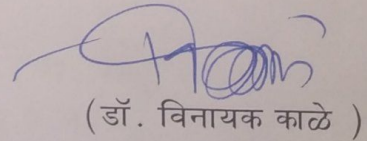 ( डॉ. विनायक काळे )